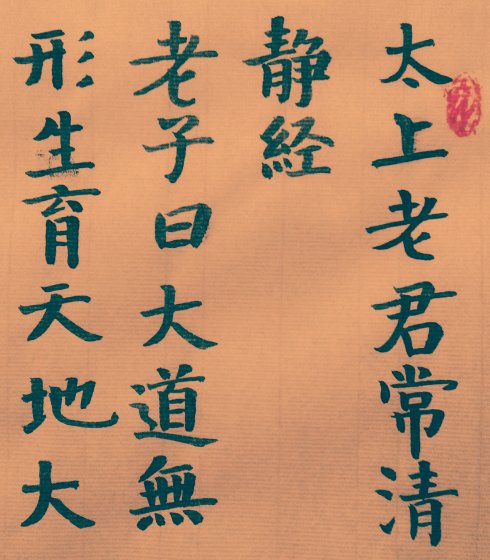 太上老君常清
静経
老子曰大道無
形生育天地大